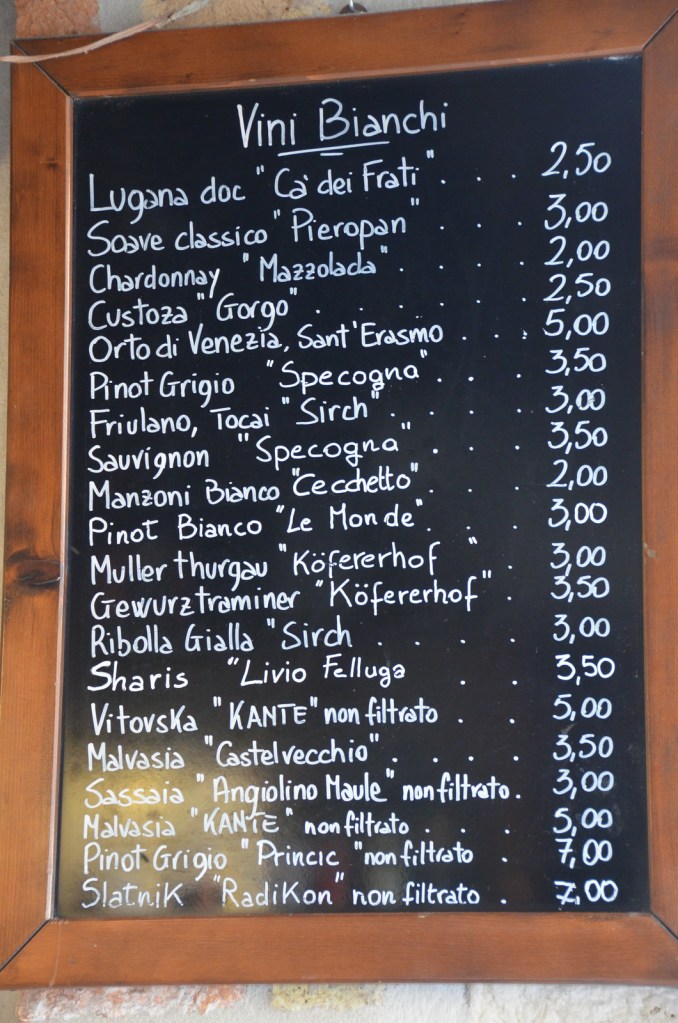 Vini Bianchi
Lugana doc "Ca' dei Frati" . . . 2,50
Soave classico "Pieropan" . . . 3,00
Chardonnay "Mazzolada" . . . . 2,00
Custoza "Gorgo" . . . . . . 2,50
Orto di Venezia, Sant'Erasmo . . . 5,00
Pinot Grigio "Specogna" . . . 3,50
Friulano, Tocai "Sirch" . . . . 3,00
Sauvignon "Specogna" . . . 3,50
Manzoni Bianco "Cecchetto" . . . 2,00
Pinot Bianco "Le Monde" . . . 3,00
Muller thurgau "Köfererhof" . 3,00
Gewurztraminer "Köfererhof" . 3,50
Ribolla Gialla "Sirch . . . . 3,00
Sharis "Livio Felluga . . 3,50
Vitovska "KANTE" non filtrato . . 5,00
Malvasia "Castelvecchio" . . . . 3,50
Sassaia "Angiolino Maule" non filtrato . 3,00
Malvasia "KANTE" non filtrato . . . 5,00
Pinot Grigio "Princic" non filtrato . 7,00
Slatnik "Radikon" non filtrato . 7,00